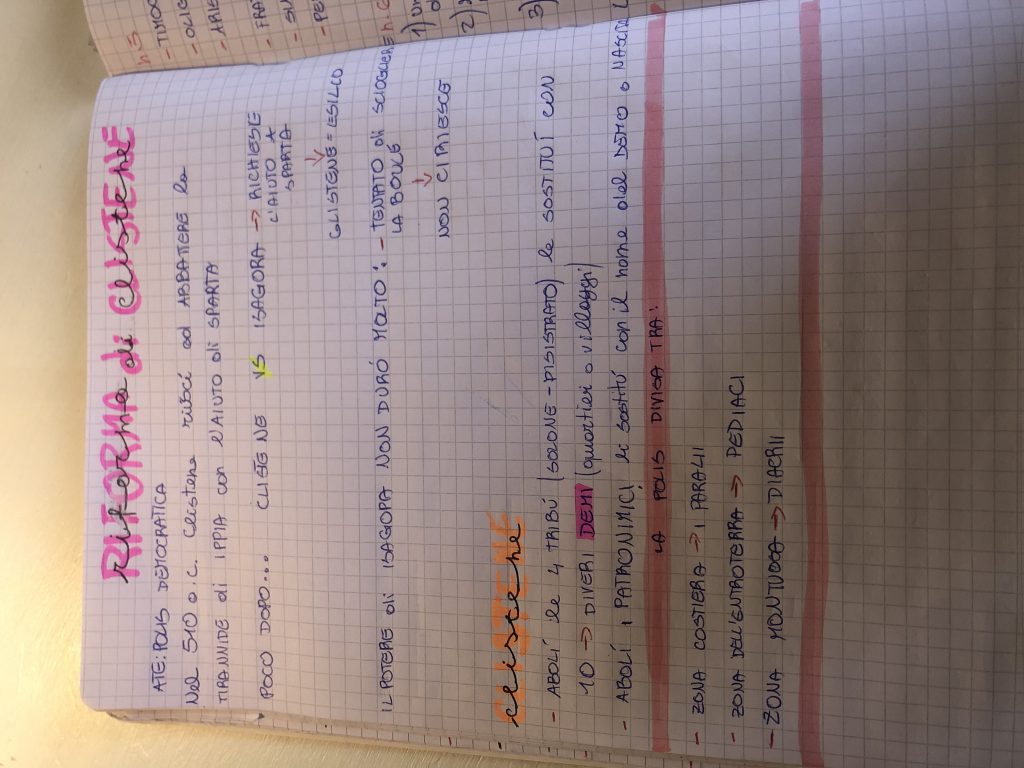 RIFORMA di CLISTENE
riforma di clistene
ATE: POLIS DEMOCRATICA
Nel 510 a.C. Clistene riuscì ad ABBATTERE la
TIRANNIDE di IPPIA con l'AIUTO di SPARTA
POCO DOPO... CLISTENE VS ISAGORA → RICHIESE
L'AIUTO A
SPARTA
CLISTENE = ESILIO
IL POTERE di ISAGORA NON DURÒ MOLTO: - TENTATO di SCIOGLIERE
LA BOULÉ
NON CI RIESCE
CLISTENE
clistene
- ABOLÌ le 4 TRIBÙ (SOLONE - PISISTRATO) le SOSTITUÌ CON
10 → DIVERI DEMI (quartieri o villaggi)
- ABOLÌ I PATRONIMICI li sostituì con il nome del DEMO o NASCITA
LA POLIS DIVISA TRA:
- ZONA COSTIERA → I PARALII
- ZONA DELL'ENTROTERRA → PEDIACI
- ZONA MONTUOSA → DIACRII
- TIMOC
- OLIG
1)
2)
3)